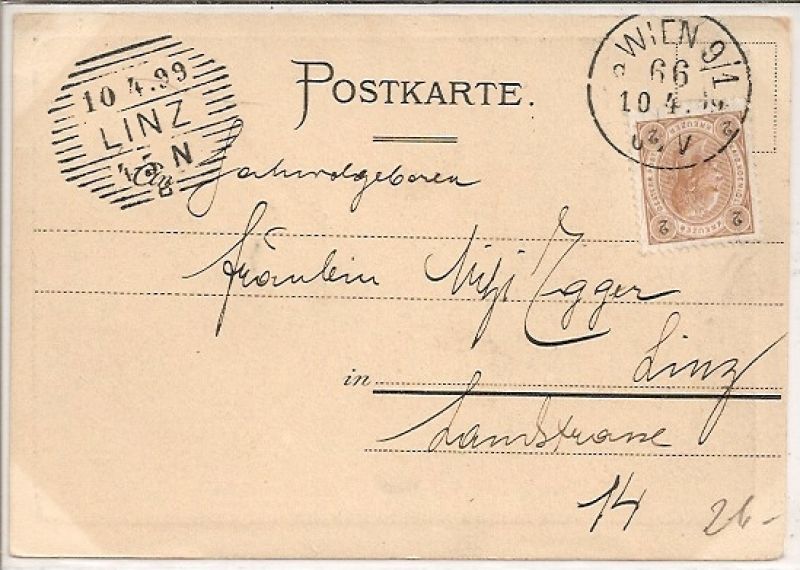 POSTKARTE.
WIEN 9/1
66
10.4.99
V
10.4.99
LINZ
N
2 KREUZER 2
2 KREUZER 2
Hochwohlgeboren
Fräulein Mizi Egger
in Linz
Landstrasse
14
26-